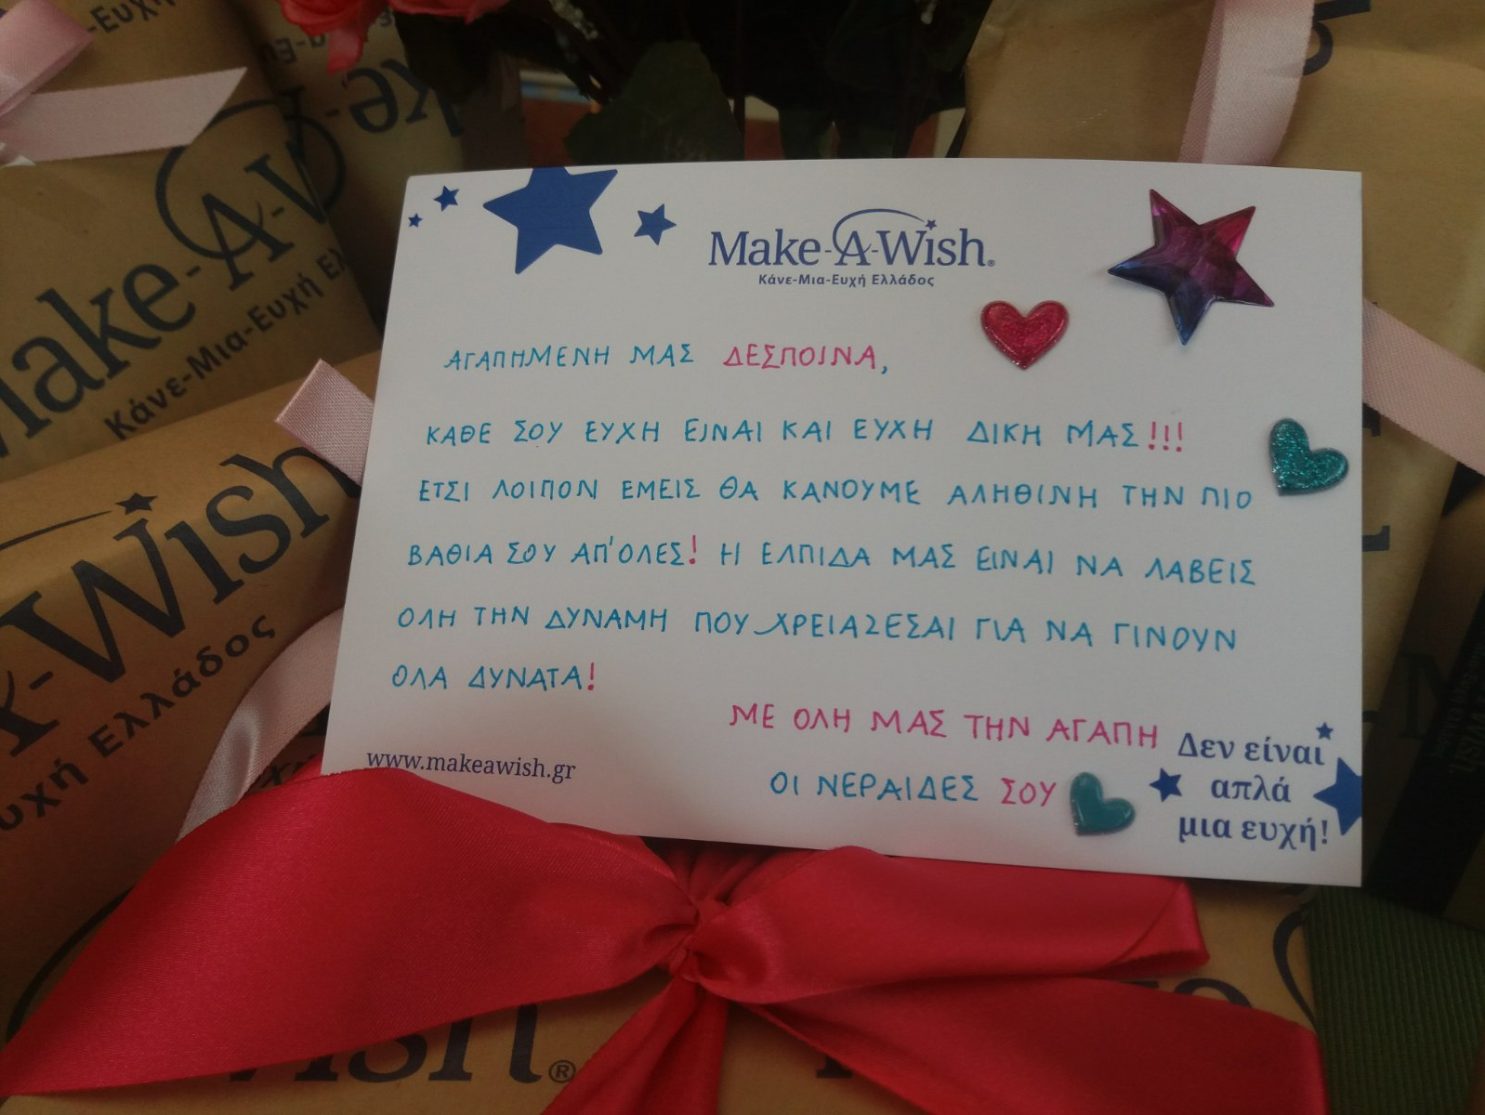 Make-A-Wish®
Κάνε-Μια-Ευχή Ελλάδος
ΑΓΑΠΗΜΕΝΗ ΜΑΣ ΔΕΣΠΟΙΝΑ,
ΚΑΘΕ ΣΟΥ ΕΥΧΗ ΕΙΝΑΙ ΚΑΙ ΕΥΧΗ ΔΙΚΗ ΜΑΣ!!!
ΕΤΣΙ ΛΟΙΠΟΝ ΕΜΕΙΣ ΘΑ ΚΑΝΟΥΜΕ ΑΛΗΘΙΝΗ ΤΗΝ ΠΙΟ
ΒΑΘΙΑ ΣΟΥ ΑΠ'ΟΛΕΣ! Η ΕΛΠΙΔΑ ΜΑΣ ΕΙΝΑΙ ΝΑ ΛΑΒΕΙΣ
ΟΛΗ ΤΗΝ ΔΥΝΑΜΗ ΠΟΥ ΧΡΕΙΑΖΕΣΑΙ ΓΙΑ ΝΑ ΓΙΝΟΥΝ
ΟΛΑ ΔΥΝΑΤΑ!
ΜΕ ΟΛΗ ΜΑΣ ΤΗΝ ΑΓΑΠΗ
ΟΙ ΝΕΡΑΙΔΕΣ ΣΟΥ
www.makeawish.gr
Δεν είναι
απλά
μια ευχή!
Make-A-W
Κάνε-Μια-Ευχή Ελ
A-Wish
υχή Ελλάδος
wish®